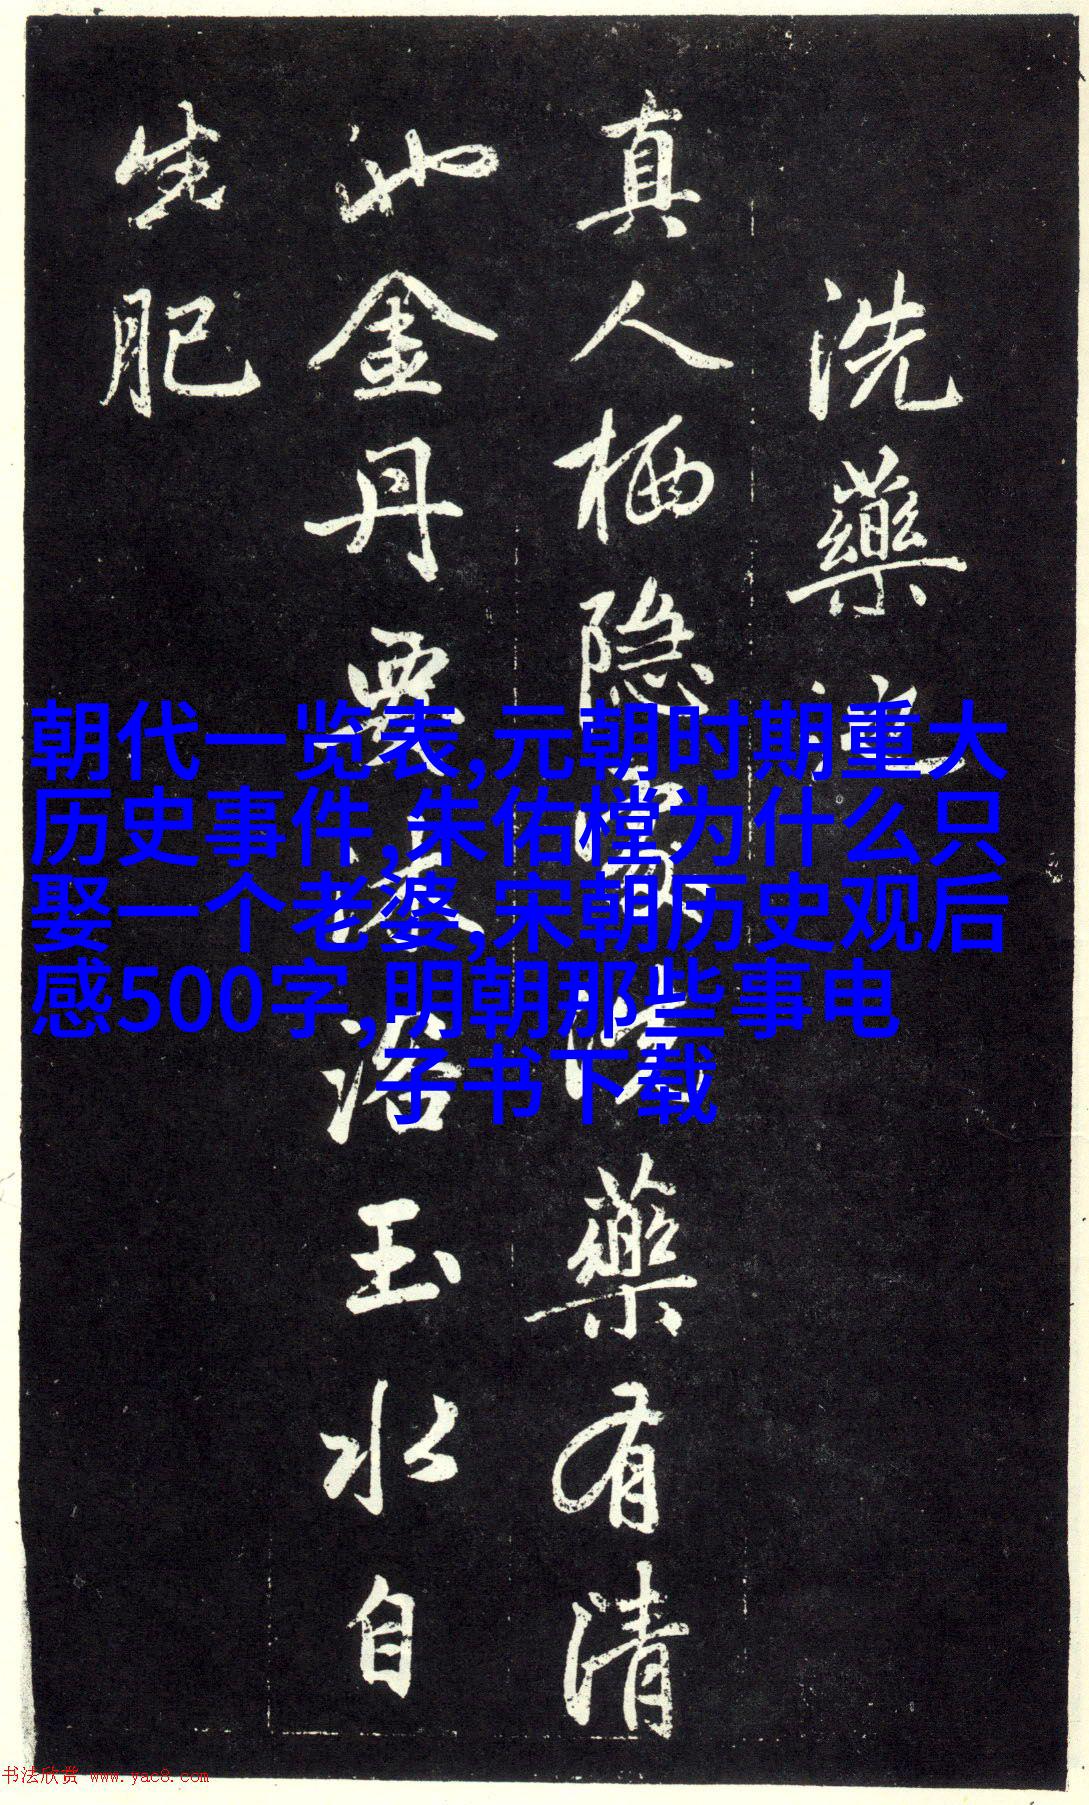 洗藥池
真人栖隱處洗藥有清
池金丹要沐浴玉水自
生肥
朝代一览表,元朝时期重大
历史事件,朱佑樘为什么只
娶一个老婆,宋朝历史观后
感500字,明朝那些事电
子书下载
书法欣赏 www.yac8.com